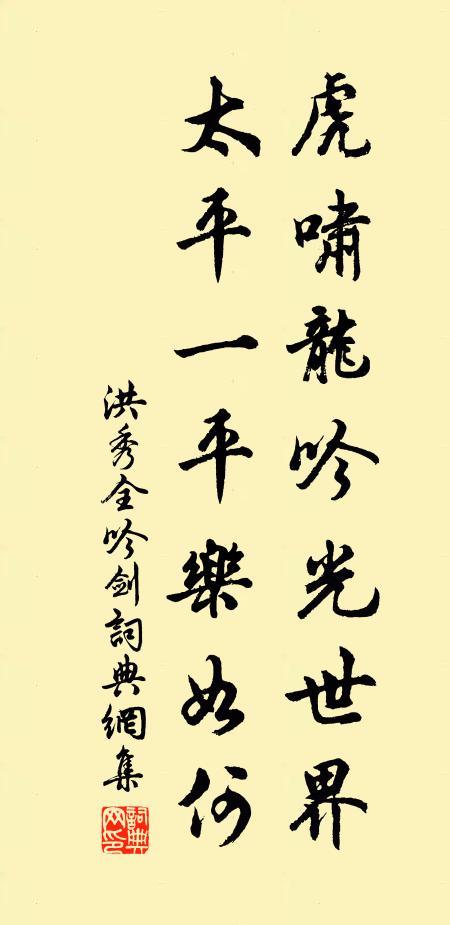 虎嘯龍吟光世界
太平一平樂如何
洪秀全吟劍詞典網集
詞典网印